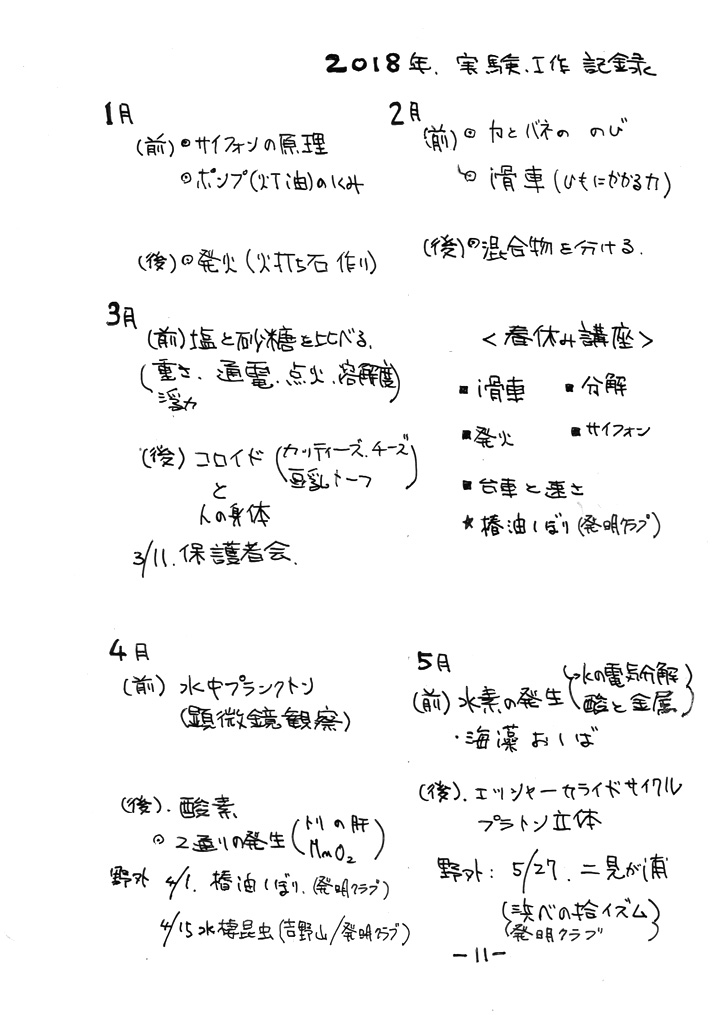 2018年.実験.工作 記録
1月
(前)⊙サイフォンの原理
⊙ポンプ(灯油)のしくみ
(後)⊙発火(火打ち石作り)
2月
(前)⊙力とバネの のび
⊙滑車(ひもにかかる力)
(後)⊙混合物を分ける.
3月
(前)塩と砂糖を比べる.
(重さ.通電.点火.溶解度)
浮力
(後)コロイド(カッティーズ.チーズ
豆乳トーフ)
と
人の身体
3/11.保護者会.
<春休み講座>
■滑車 ■分解
■発火 ■サイフォン
■台車と速さ
★椿油しぼり(発明クラブ)
4月
(前)水中プランクトン
(顕微鏡観察)
(後).酸素
⊙2通りの発生(トリの肝
MnO₂)
野外 4/1.椿油しぼり.(発明クラブ)
4/15水棲昆虫(吉野山/発明クラブ)
5月
(前)水素の発生(水の電気分解
酸と金属)
・海藻おしば
(後).エッシャーカライドサイクル
プラトン立体
野外:5/27.二見が浦
(浜べの拾イズム)
(発明クラブ)
-11-